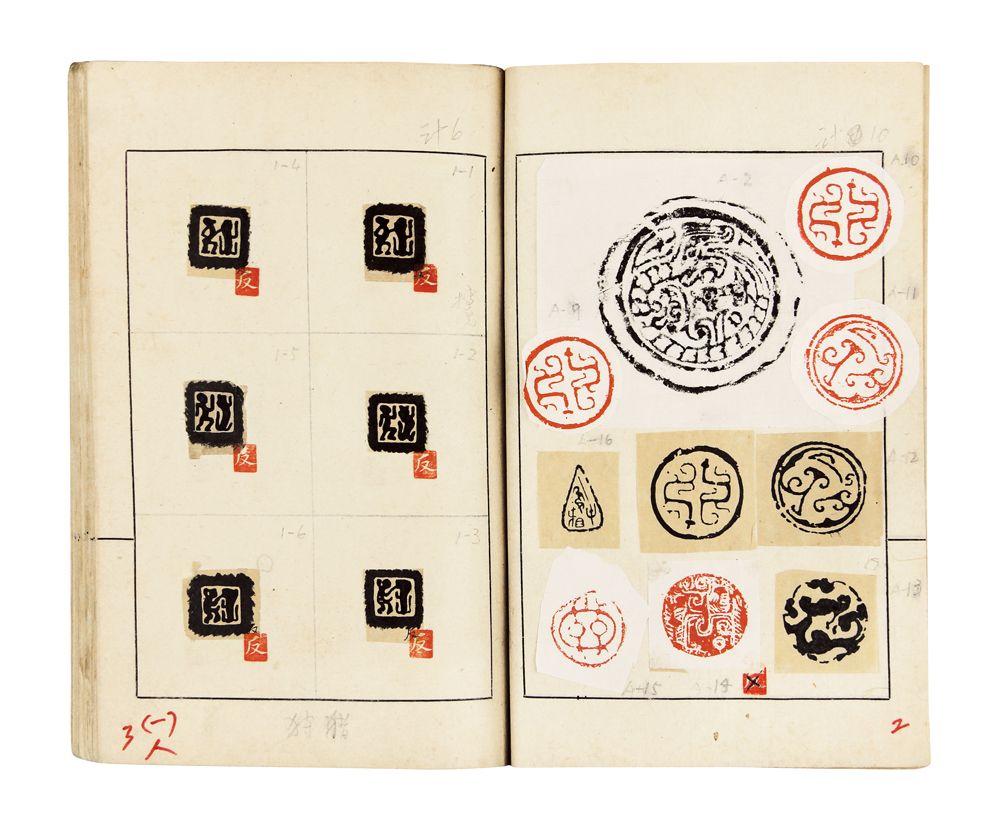 计 10
A-10
A-2
A-11
A-9
A-16
A-12
A-13
A-15
A-14
2
计6
1-1
反
1-2
反
1-3
反
1-4
反
1-5
反
1-6
反
狩猎
3 (一)
人